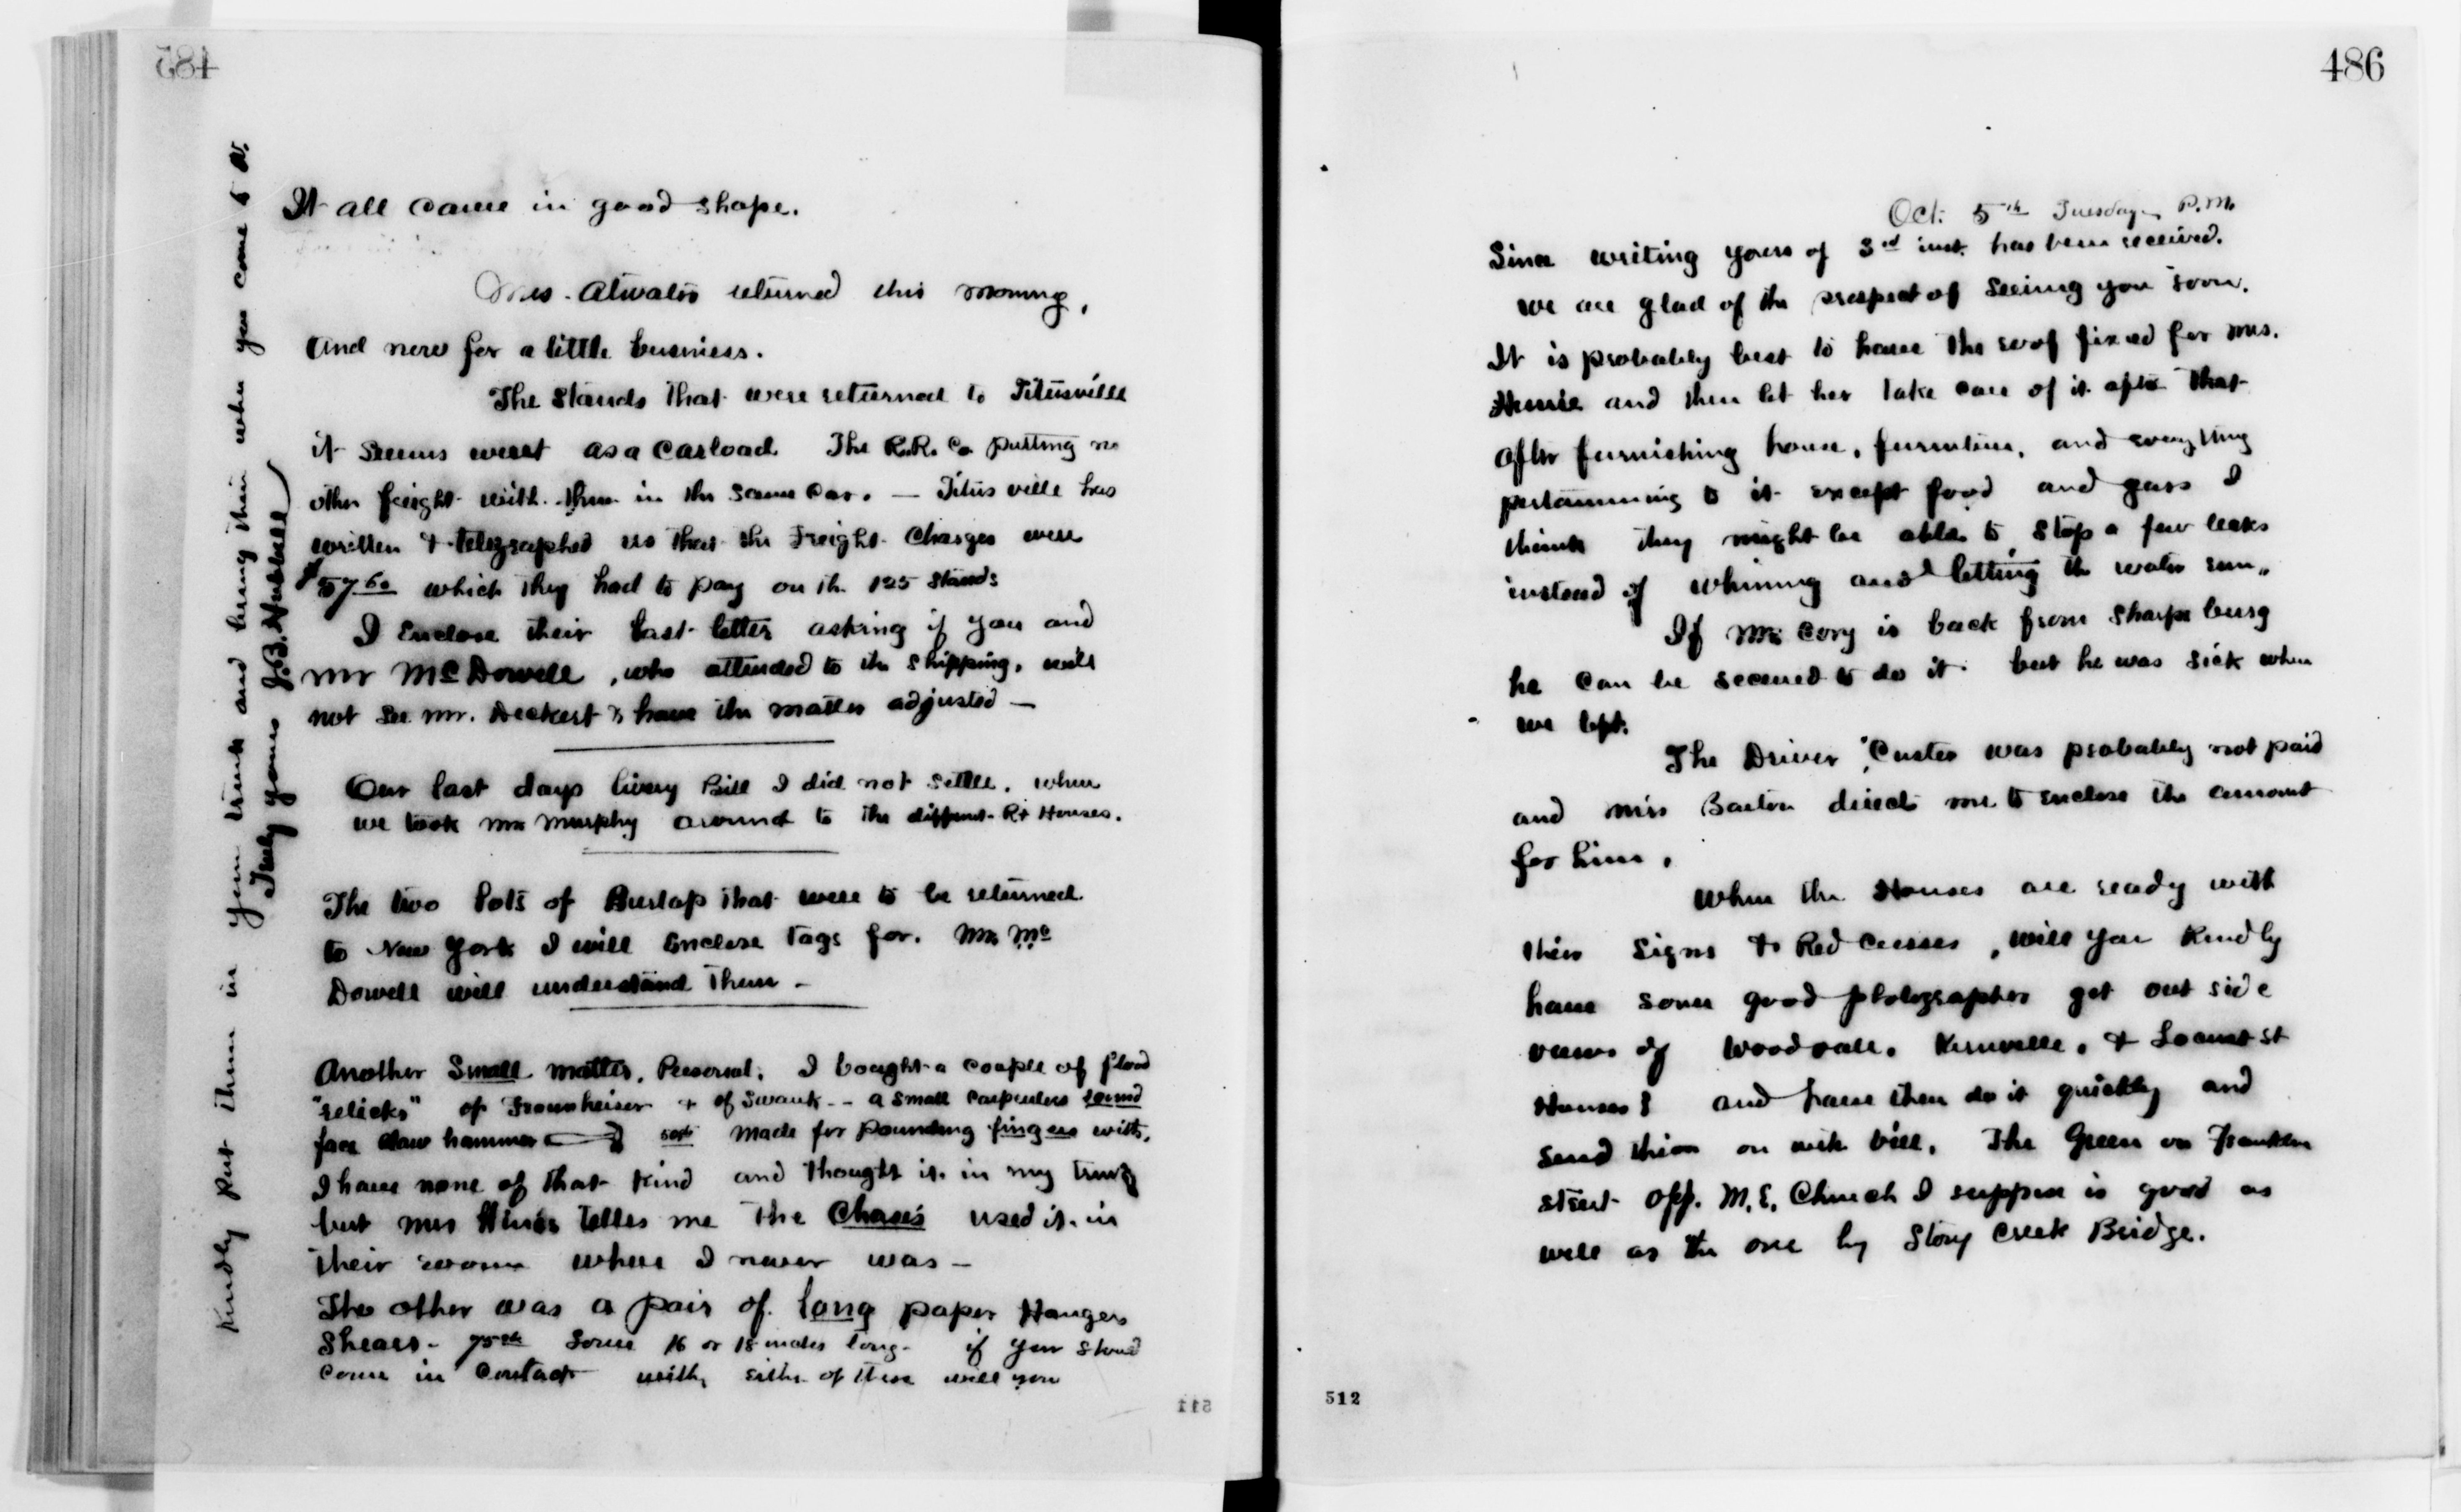 It all came in good shape.
Mrs. Atwater returned this morning,
And now for a little business.
The Stands that were returned to Titusville
it seems went as a carload The R.R. Co. putting no
other freight with them in the same car. — Titusville has
written & telegraphed us that the Freight Charges were
$57.60 which they had to pay on th. 125 stands
I Enclose their last letter asking if you and
mr McDowell, who attended to the shipping, will
not see mr. Deckert & have the matter adjusted —
Our last days livery Bill I did not settle, when
we took Mr Murphy around to the different R+ Houses.
The two lots of Burlap that were to be returned
to New York I will Enclose tags for. Mr Mc
Dowell will understand them —
Another Small matter. Personal. I bought a couple of flood
"relicks" of Fronheiser & of Swank -- a small carpenters round
face claw hammer made for pounding fingers with,
I have none of that kind and thought it in my trunk
but mrs Hines telles me the Chases used it in
their rooms where I never was —
The other was a pair of long paper Hangers
Shears - 75cts some 16 or 18 inches long - if you should
come in contact with either of these will you
Kindly put them in your trunk and bring them when you come to W.
Truly yours J.B. Hubbell
485
511
486
Oct. 5th Tuesday P.M.
Since writing yours of 3rd inst. has been received.
We are glad of the prospect of seeing you soon.
It is probably best to have the roof fixed for mrs.
and then let her take care of it after that
After furnishing house, furniture, and everything
pertainning to it except food and gass I
think they might be able to stop a few leaks
instead of whining and letting the water run,,
If Mr Cory is back from Sharpsburg
he can be secured to do it but he was sick when
we left.
The Driver, Custer was probably not paid
and miss Barton directs me to enclose the amount
for him.
When the Houses are ready with
their Signs & Red Crosses, will you kindly
have some good photographer get out side
views of Woodvale, Kernville, & Locust St
Houses? and have them do it quickly and
send them on with bill. The Green on Franklin
street opp. M.E. Church I suppose is good as
well as the one by Stony Creek Bridge.
512